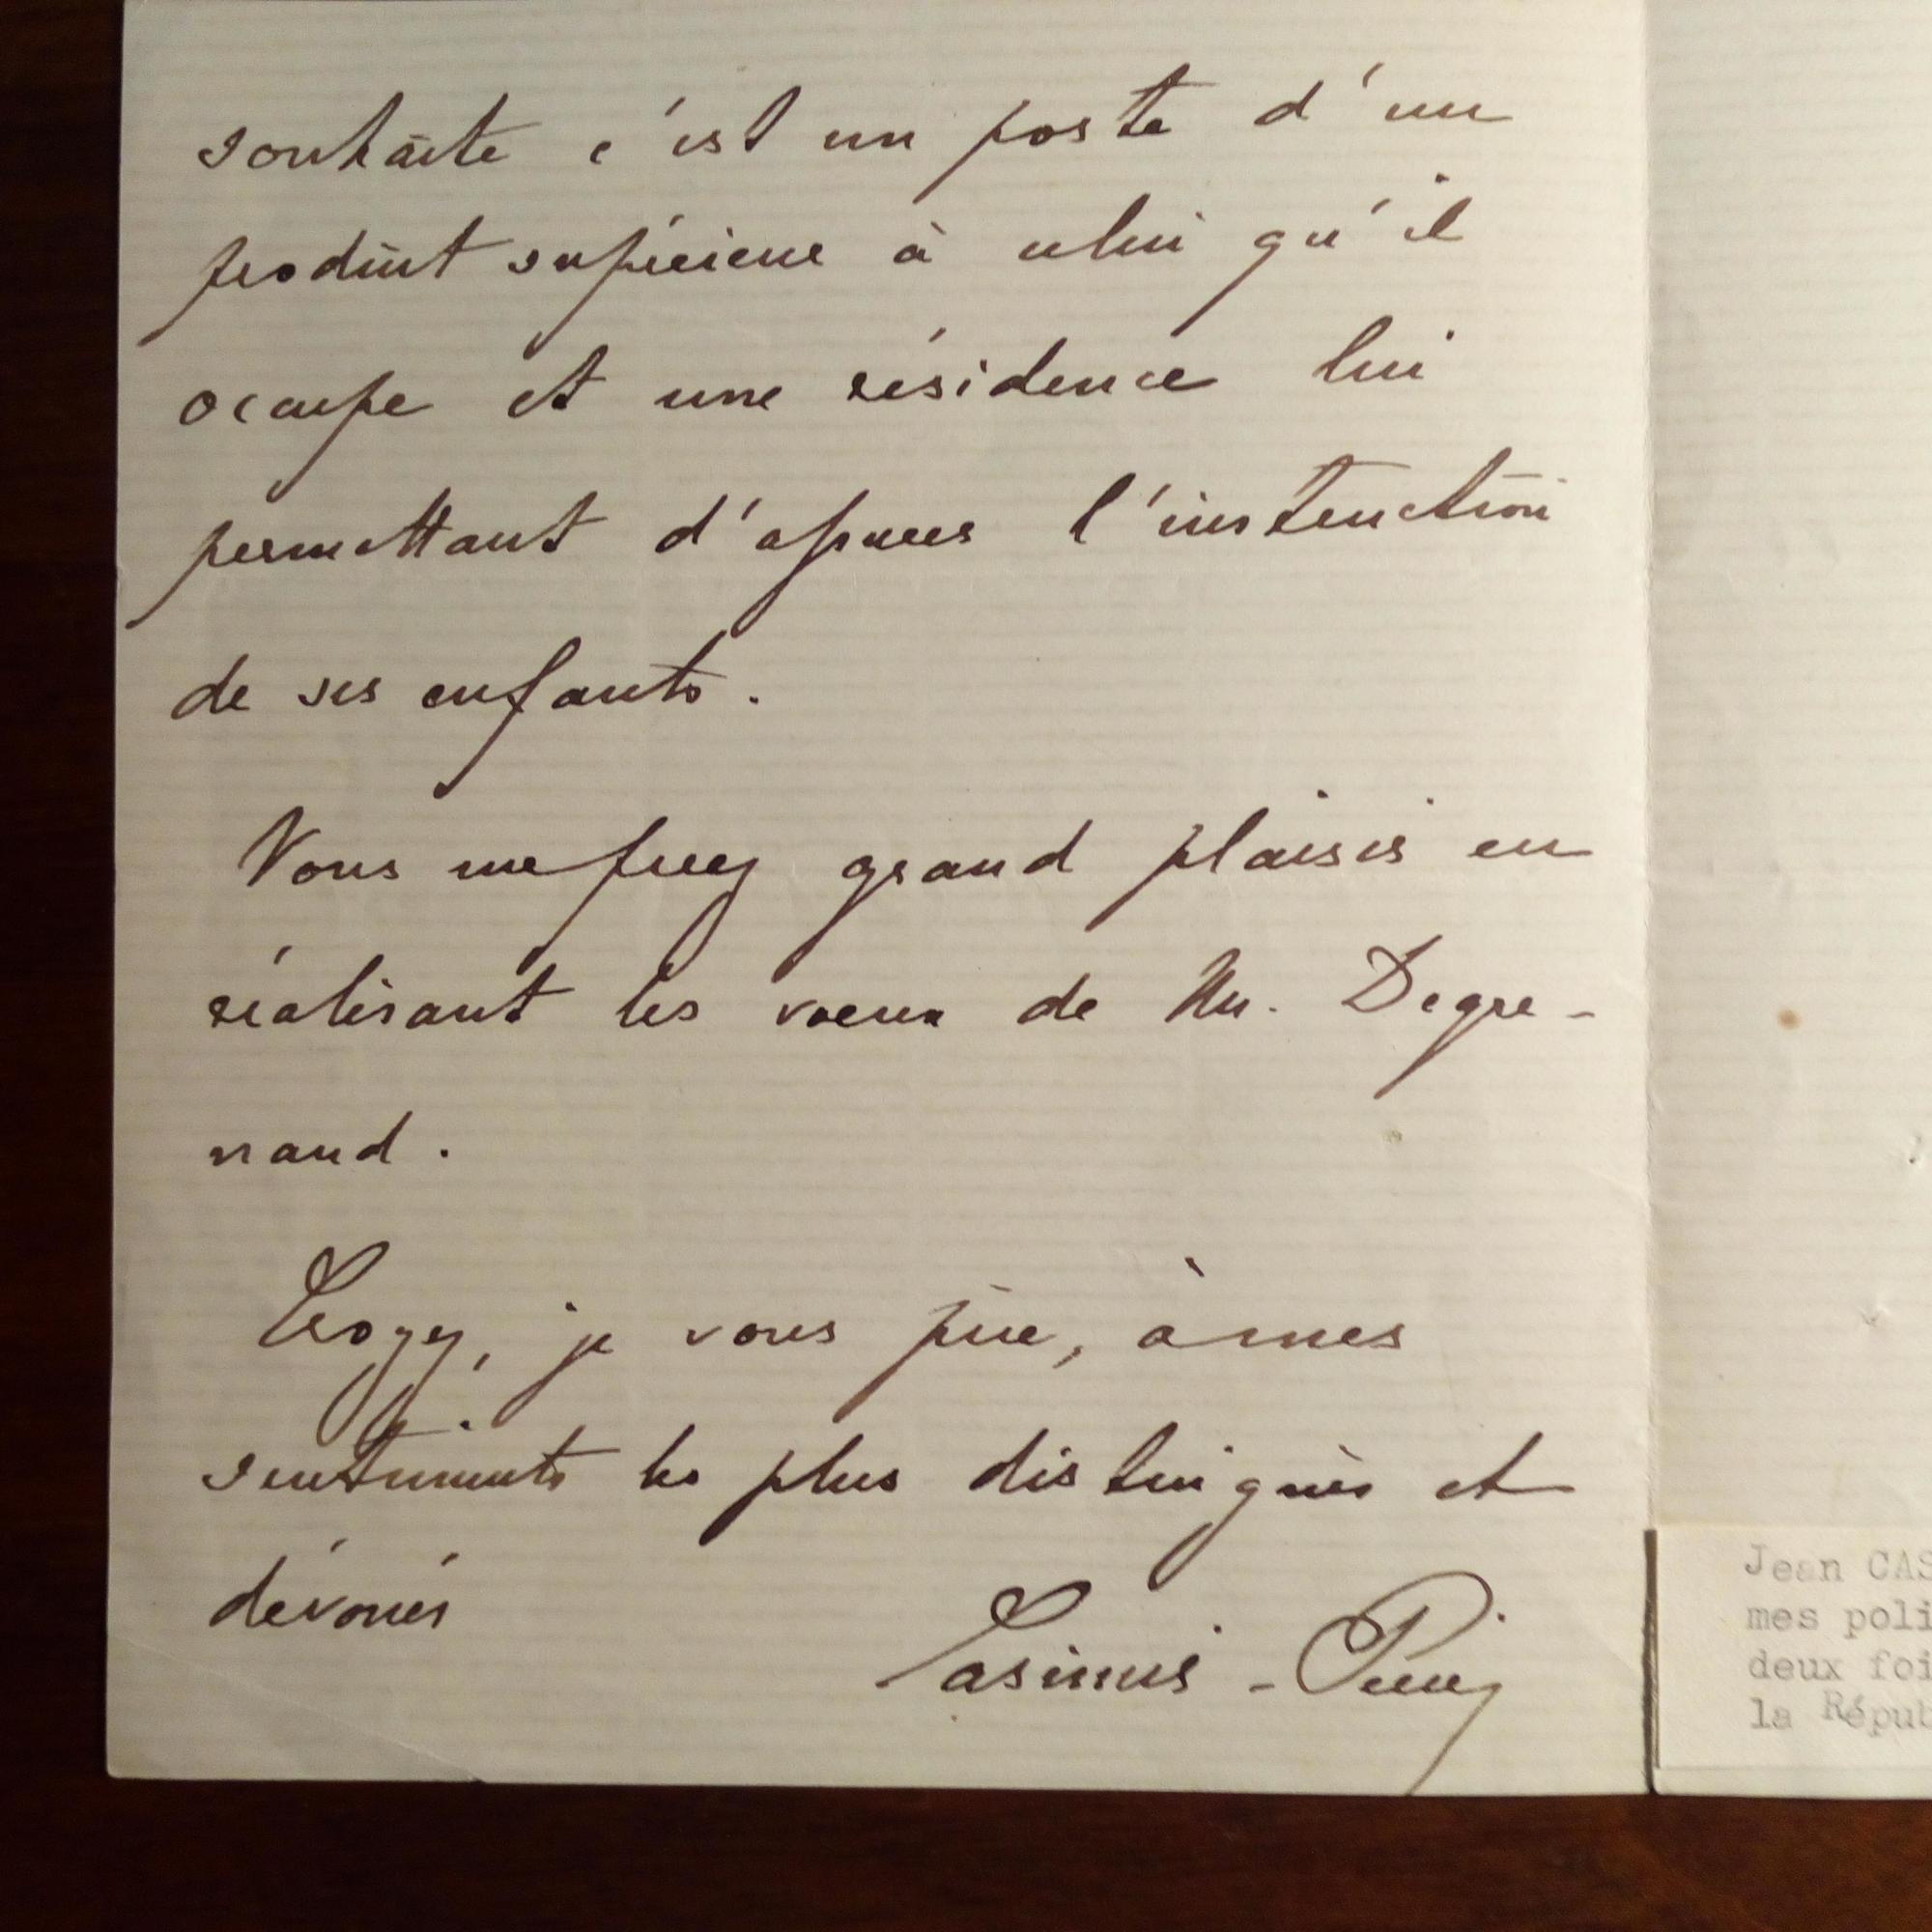 souhaite c'est un poste d'un
produit supérieur à celui qu'il
occupe et une résidence lui
permettant d'assurer l'instruction
de ses enfants.
Vous me ferez grand plaisir en
réalisant les vœux de M. Degre-
naud.
Croyez, je vous prie, à mes
sentiments les plus distingués et
dévoués
Casimir-Perier
Jean CAS
mes poli
deux foi
la Répub